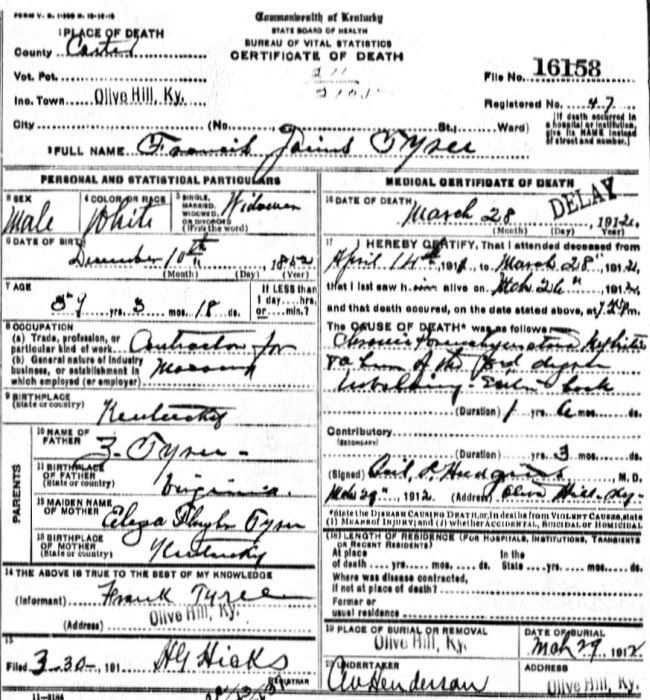 FORM V. S. 1-300 M. 12-16-10
Commonwealth of Kentucky
STATE BOARD OF HEALTH
BUREAU OF VITAL STATISTICS
CERTIFICATE OF DEATH
1 PLACE OF DEATH
County Carter
Vot. Pct.
Inc. Town Olive Hill, Ky.
City (No. St.; Ward)
File No. 16158
Registered No. 47
(If death occurred in a hospital or institution, give its NAME instead of street and number.)
2 FULL NAME Francis Tyree
PERSONAL AND STATISTICAL PARTICULARS
3 SEX
Male
4 COLOR OR RACE
White
5 SINGLE, MARRIED, WIDOWED, OR DIVORCED (Write the word)
Widower
6 DATE OF BIRTH
December 10th 1852
(Month) (Day) (Year)
7 AGE
59 yrs. 3 mos. 18 ds.
If LESS than 1 day....hrs. or....min.?
8 OCCUPATION
(a) Trade, profession, or particular kind of work Contractor for
(b) General nature of industry business, or establishment in which employed (or employer)
9 BIRTHPLACE (State or country)
Kentucky
PARENTS
10 NAME OF FATHER
Z. Tyree
11 BIRTHPLACE OF FATHER (State or country)
Virginia.
12 MAIDEN NAME OF MOTHER
Tyree
13 BIRTHPLACE OF MOTHER (State or country)
Kentucky
14 THE ABOVE IS TRUE TO THE BEST OF MY KNOWLEDGE
(Informant) Frank Tyree
(Address) Olive Hill, Ky.
15
Filed 3-30-, 191 HG Hicks
REGISTRAR
11-3184
MEDICAL CERTIFICATE OF DEATH
16 DATE OF DEATH
DELAY
March 28, 1912
(Month) (Day) (Year)
17 I HEREBY CERTIFY, That I attended deceased from
April 14th 191, to March 28", 1912,
that I last saw h im alive on Mch 26", 1912,
and that death occured, on the date stated above, at m.
The CAUSE OF DEATH* was as follows:
Chronic Parenchymatous Nephritis
(Duration) 1 yrs. 6 mos. ds.
Contributory
(SECONDARY)
(Duration) yrs. 3 mos. ds.
(Signed) Hudgins, M. D.
Mch 29", 1912 (Address) Olive Hill, Ky.
*State the DISEASE CAUSING DEATH, or, in deaths from VIOLENT CAUSES, state
(1) MEANS OF INJURY; and (2) whether ACCIDENTAL, SUICIDAL or HOMICIDAL
(18) LENGTH OF RESIDENCE (FOR HOSPITALS, INSTITUTIONS, TRANSIENTS OR RECENT RESIDENTS)
At place of death .... yrs. .... mos. .... ds.
In the State .... yrs. .... mos. .... ds.
Where was disease contracted, if not at place of death?
Former or usual residence
19 PLACE OF BURIAL OR REMOVAL
Olive Hill, Ky.
DATE OF BURIAL
Mch 29, 1912
20 UNDERTAKER
Henderson
ADDRESS
Olive Hill, Ky.